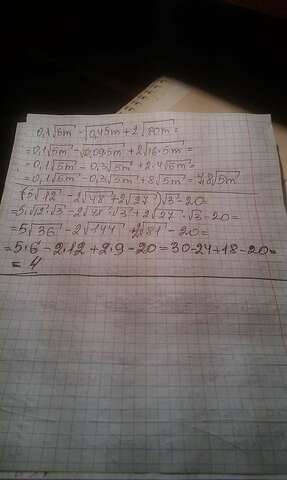 0,1√5m - √0,45m + 2√80m =
= 0,1√5m - √0,09·5m + 2√16·5m =
= 0,1√5m - 0,3√5m + 2·4√5m =
= 0,1√5m - 0,3√5m + 8√5m = 7,8√5m
(5√12 - 2√48 + 2√27)√3 - 20 =
= 5√12·√3 - 2√48·√3 + 2√27·√3 - 20 =
= 5√36 - 2√144 + 2√81 - 20 =
= 5·6 - 2·12 + 2·9 - 20 = 30 - 24 + 18 - 20 =
= 4